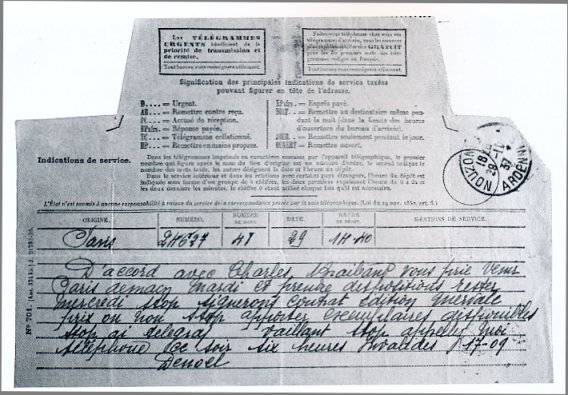 Les TÉLÉGRAMMES
URGENTS bénéficient de la
priorité de transmission et
de remise.
Tout bureau vous renseignera utilement.
Faites-vous téléphoner chez vous vos
Service GRATUIT
pour les 50 premiers mots des télé-
grammes rédigés en français.
Tout bureau vous renseignera utilement.
Signification des principales indications de service taxées
pouvant figurer en tête de l'adresse.
D.... = Urgent.
AR.... = Remettre contre reçu.
PC.... = Accusé de réception.
RPx... = Réponse payée.
TC.... = Télégramme collationné.
MP.... = Remettre en mains propres.
XPx... = Exprès payé.
NUIT.. = Remettre au destinataire même pen-
dant la nuit (dans la limite des heures
d'ouverture du bureau d'arrivée).
JOUR.. = Remettre seulement pendant le jour.
OUVERT = Remettre ouvert.
Indications de service.
Dans les télégrammes imprimés en caractères romains par l'appareil télégraphique, le premier
nombre qui figure après le nom du lieu d'origine est un numéro d'ordre, le second indique le
nombre des mots taxés, les autres désignent la date et l'heure du dépôt.
Dans le service intérieur et dans les relations avec certains pays étrangers, l'heure du dépôt est
indiquée sous forme d'un groupe de 4 chiffres, les deux premiers exprimant l'heure de 0 à 24 et
les deux derniers les minutes.
VOUZIERS
ARDENNES
L'État n'est soumis à aucune responsabilité à raison du service de la correspondance privée par la voie télégraphique. (Loi du 29 nov. 1850, art. 6.)
ORIGINE. NUMÉRO. NOMBRE DE MOTS. DATE. HEURE DE DÉPÔT. MENTIONS DE SERVICE.
Paris 24637 48 29 14-40
D'accord avec Charles Braibant vous prie venir
Paris demain mardi et prendre dispositions rester
mercredi stop signerons contrat édition
prix ou non stop apporter exemplaires disponibles
stop ai Vaillant stop appelez moi
téléphone ce soir six heures Invalides 17-09
Denoël
N° 701.